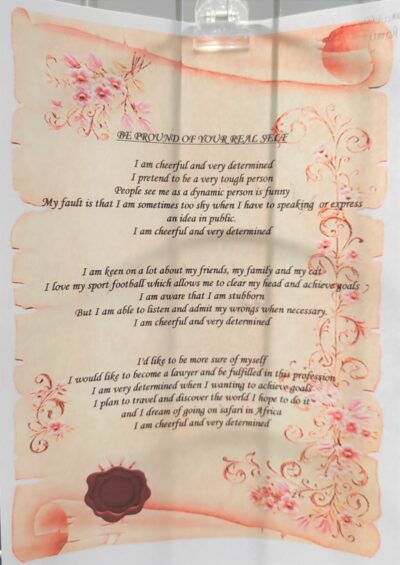 BE PROUND OF YOUR REAL SELF
I am cheerful and very determined
I pretend to be a very tough person
People see me as a dynamic person is funny
My fault is that I am sometimes too shy when I have to speaking or express
an idea in public.
I am cheerful and very determined
I am keen on a lot about my friends, my family and my cat
I love my sport football which allows me to clear my head and achieve goals
I am aware that I am stubborn
But I am able to listen and admit my wrongs when necessary.
I am cheerful and very determined
I'd like to be more sure of myself
I would like to become a lawyer and be fulfilled in this profession
I am very determined when I wanting to achieve goals
I plan to travel and discover the world I hope to do it
and I dream of going on safari in Africa
I am cheerful and very determined